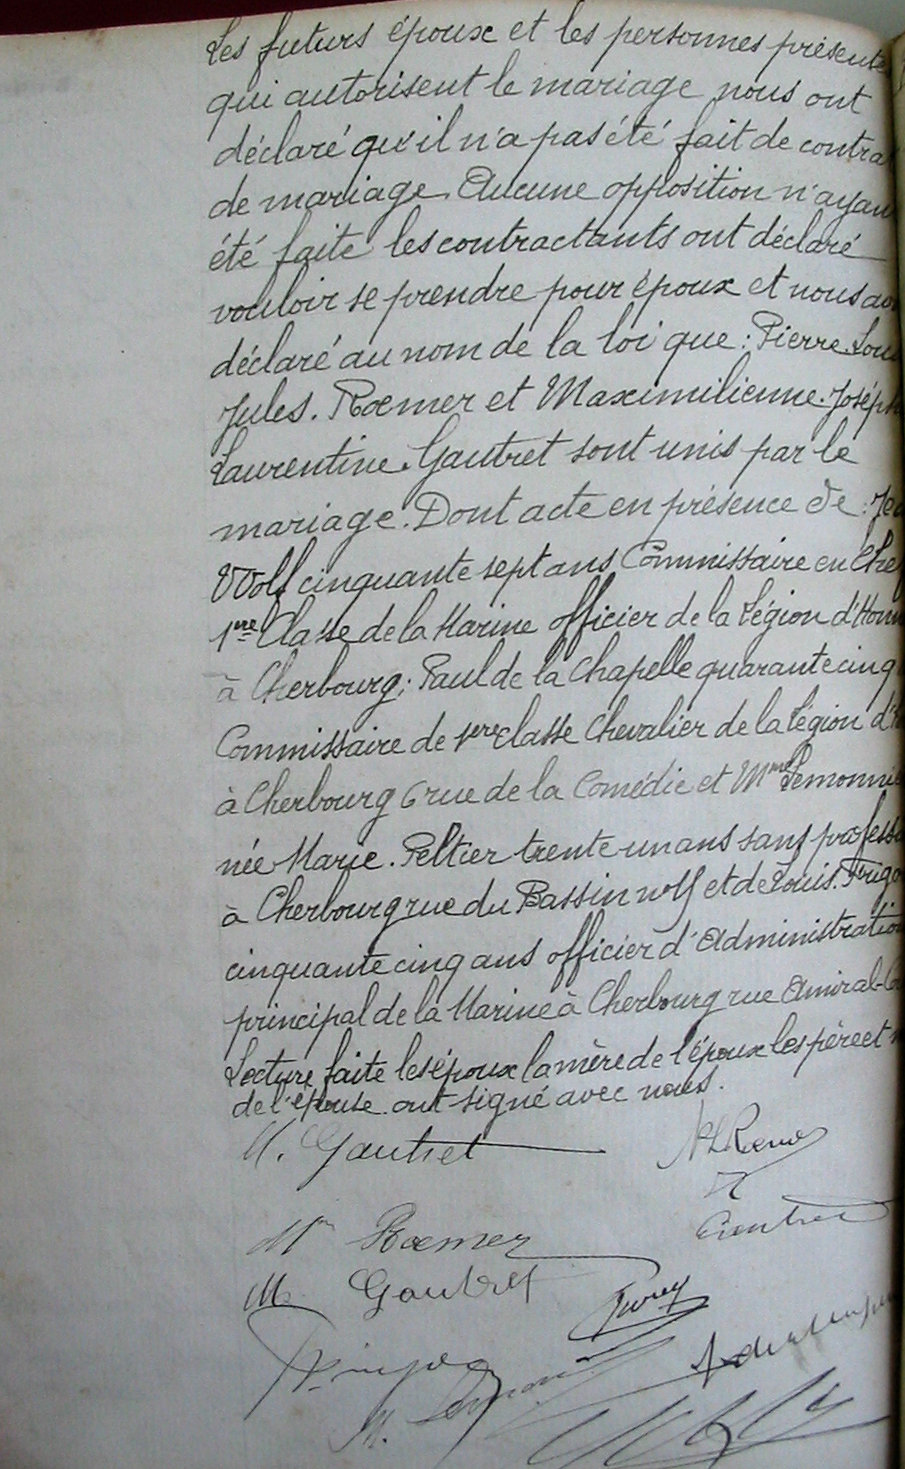 Les futurs époux et les personnes présentes
qui autorisent le mariage nous ont
déclaré qu'il n'a pas été fait de contra
de mariage. Aucune opposition n'ayan
été faite les contractants ont déclaré
vouloir se prendre pour époux et nous av
déclaré au nom de la loi que : Pierre. Lou
Jules. Roemer et Maximilienne. Joséph
Laurentine. Gautret sont unis par le
mariage. Dont acte en présence de :
Wolf cinquante sept ans Commissaire en Chef
1re Classe de la Marine officier de la Légion d'Honn
à Cherbourg ; Paul de la Chapelle quarante cinq
Commissaire de 1ere classe Chevalier de la Légion d'
à Cherbourg 6 rue de la Comédie et Mme Lemonni
née Marie. Peltier trente un ans sans professi
à Cherbourg rue du Bassin et de Louis.
cinquante cinq ans officier d'Administration
principal de la Marine à Cherbourg rue Amiral
Lecture faite les époux la mère de l'époux les père et m
de l'épouse ont signé avec nous.
M. Gautret
Roemer
M. Gautret
M.